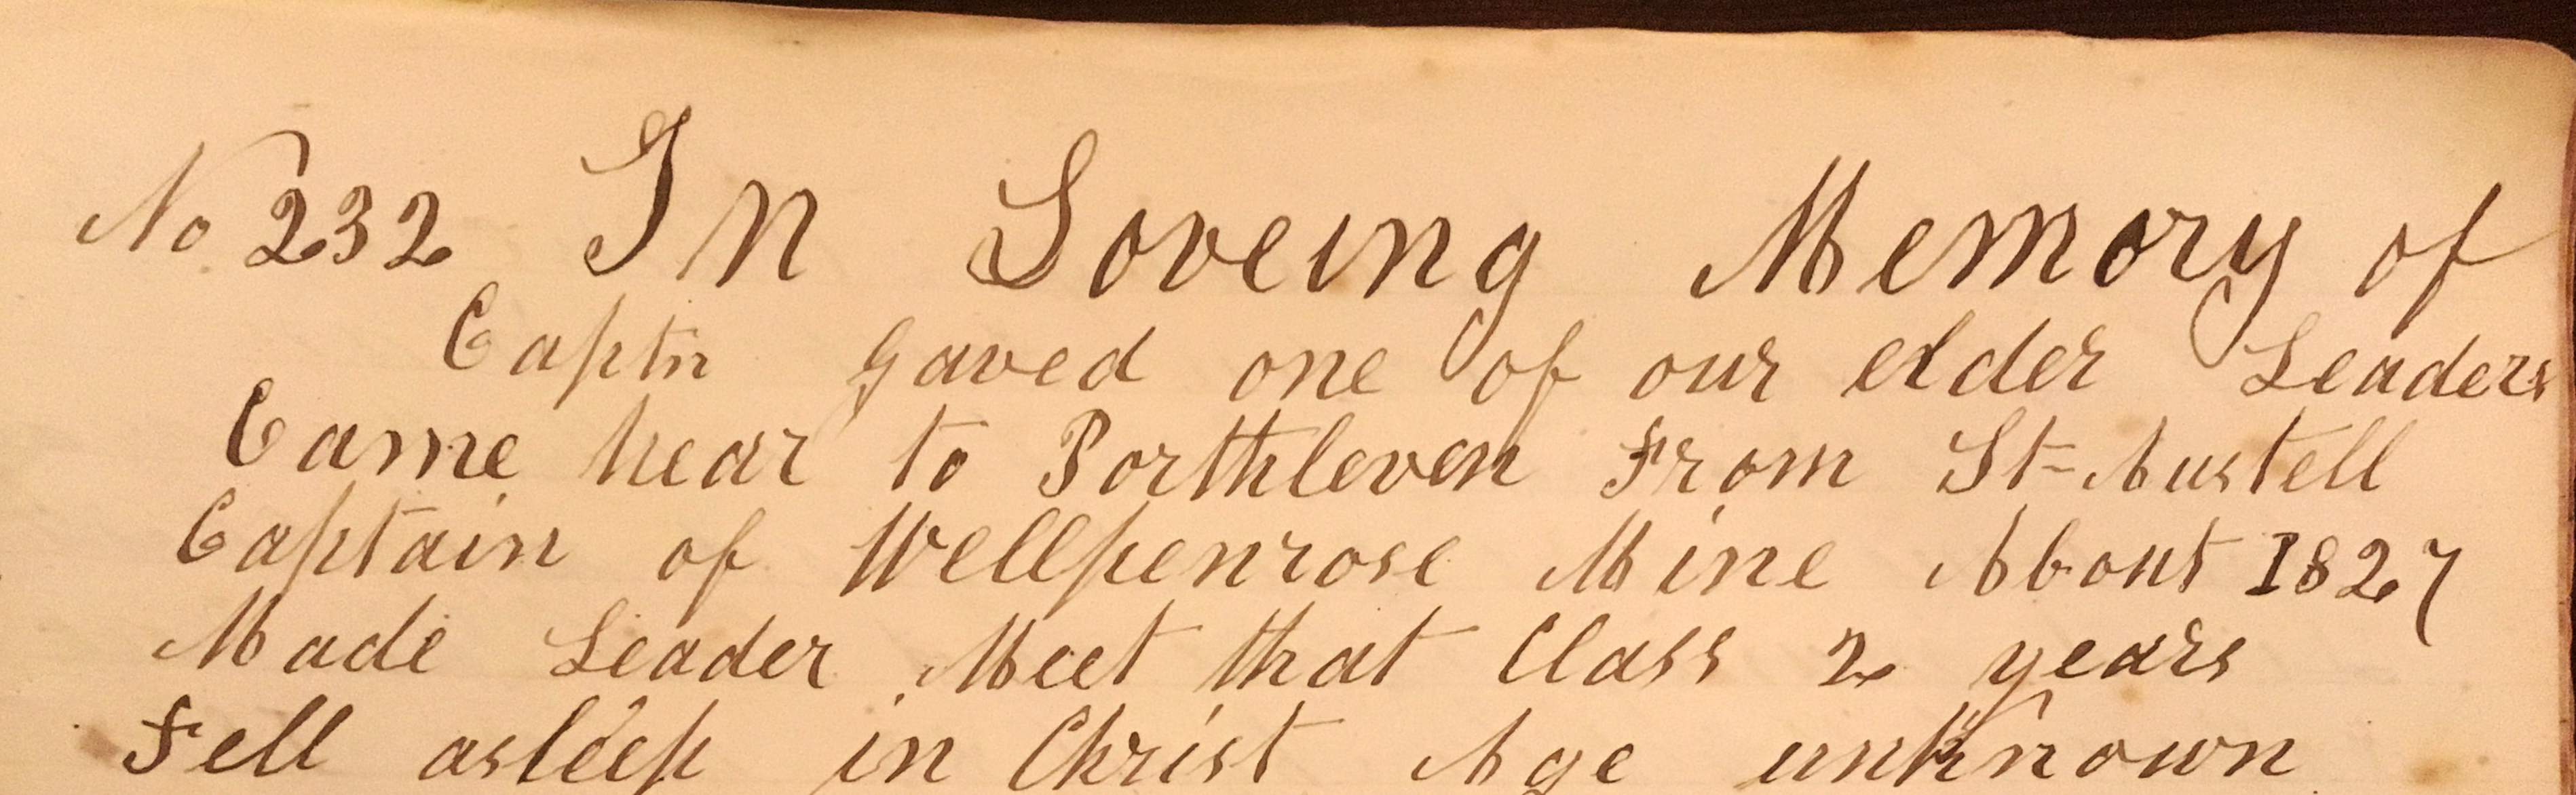 No 232 In Loveing Memory of
Captn Gaved one of our elder Leaders
Came hear to Porthleven From St-Austell
Captain of Wellpenrose Mine About 1827
Made Leader Meet that Class 2 years
Fell asleep in Christ Age unknown